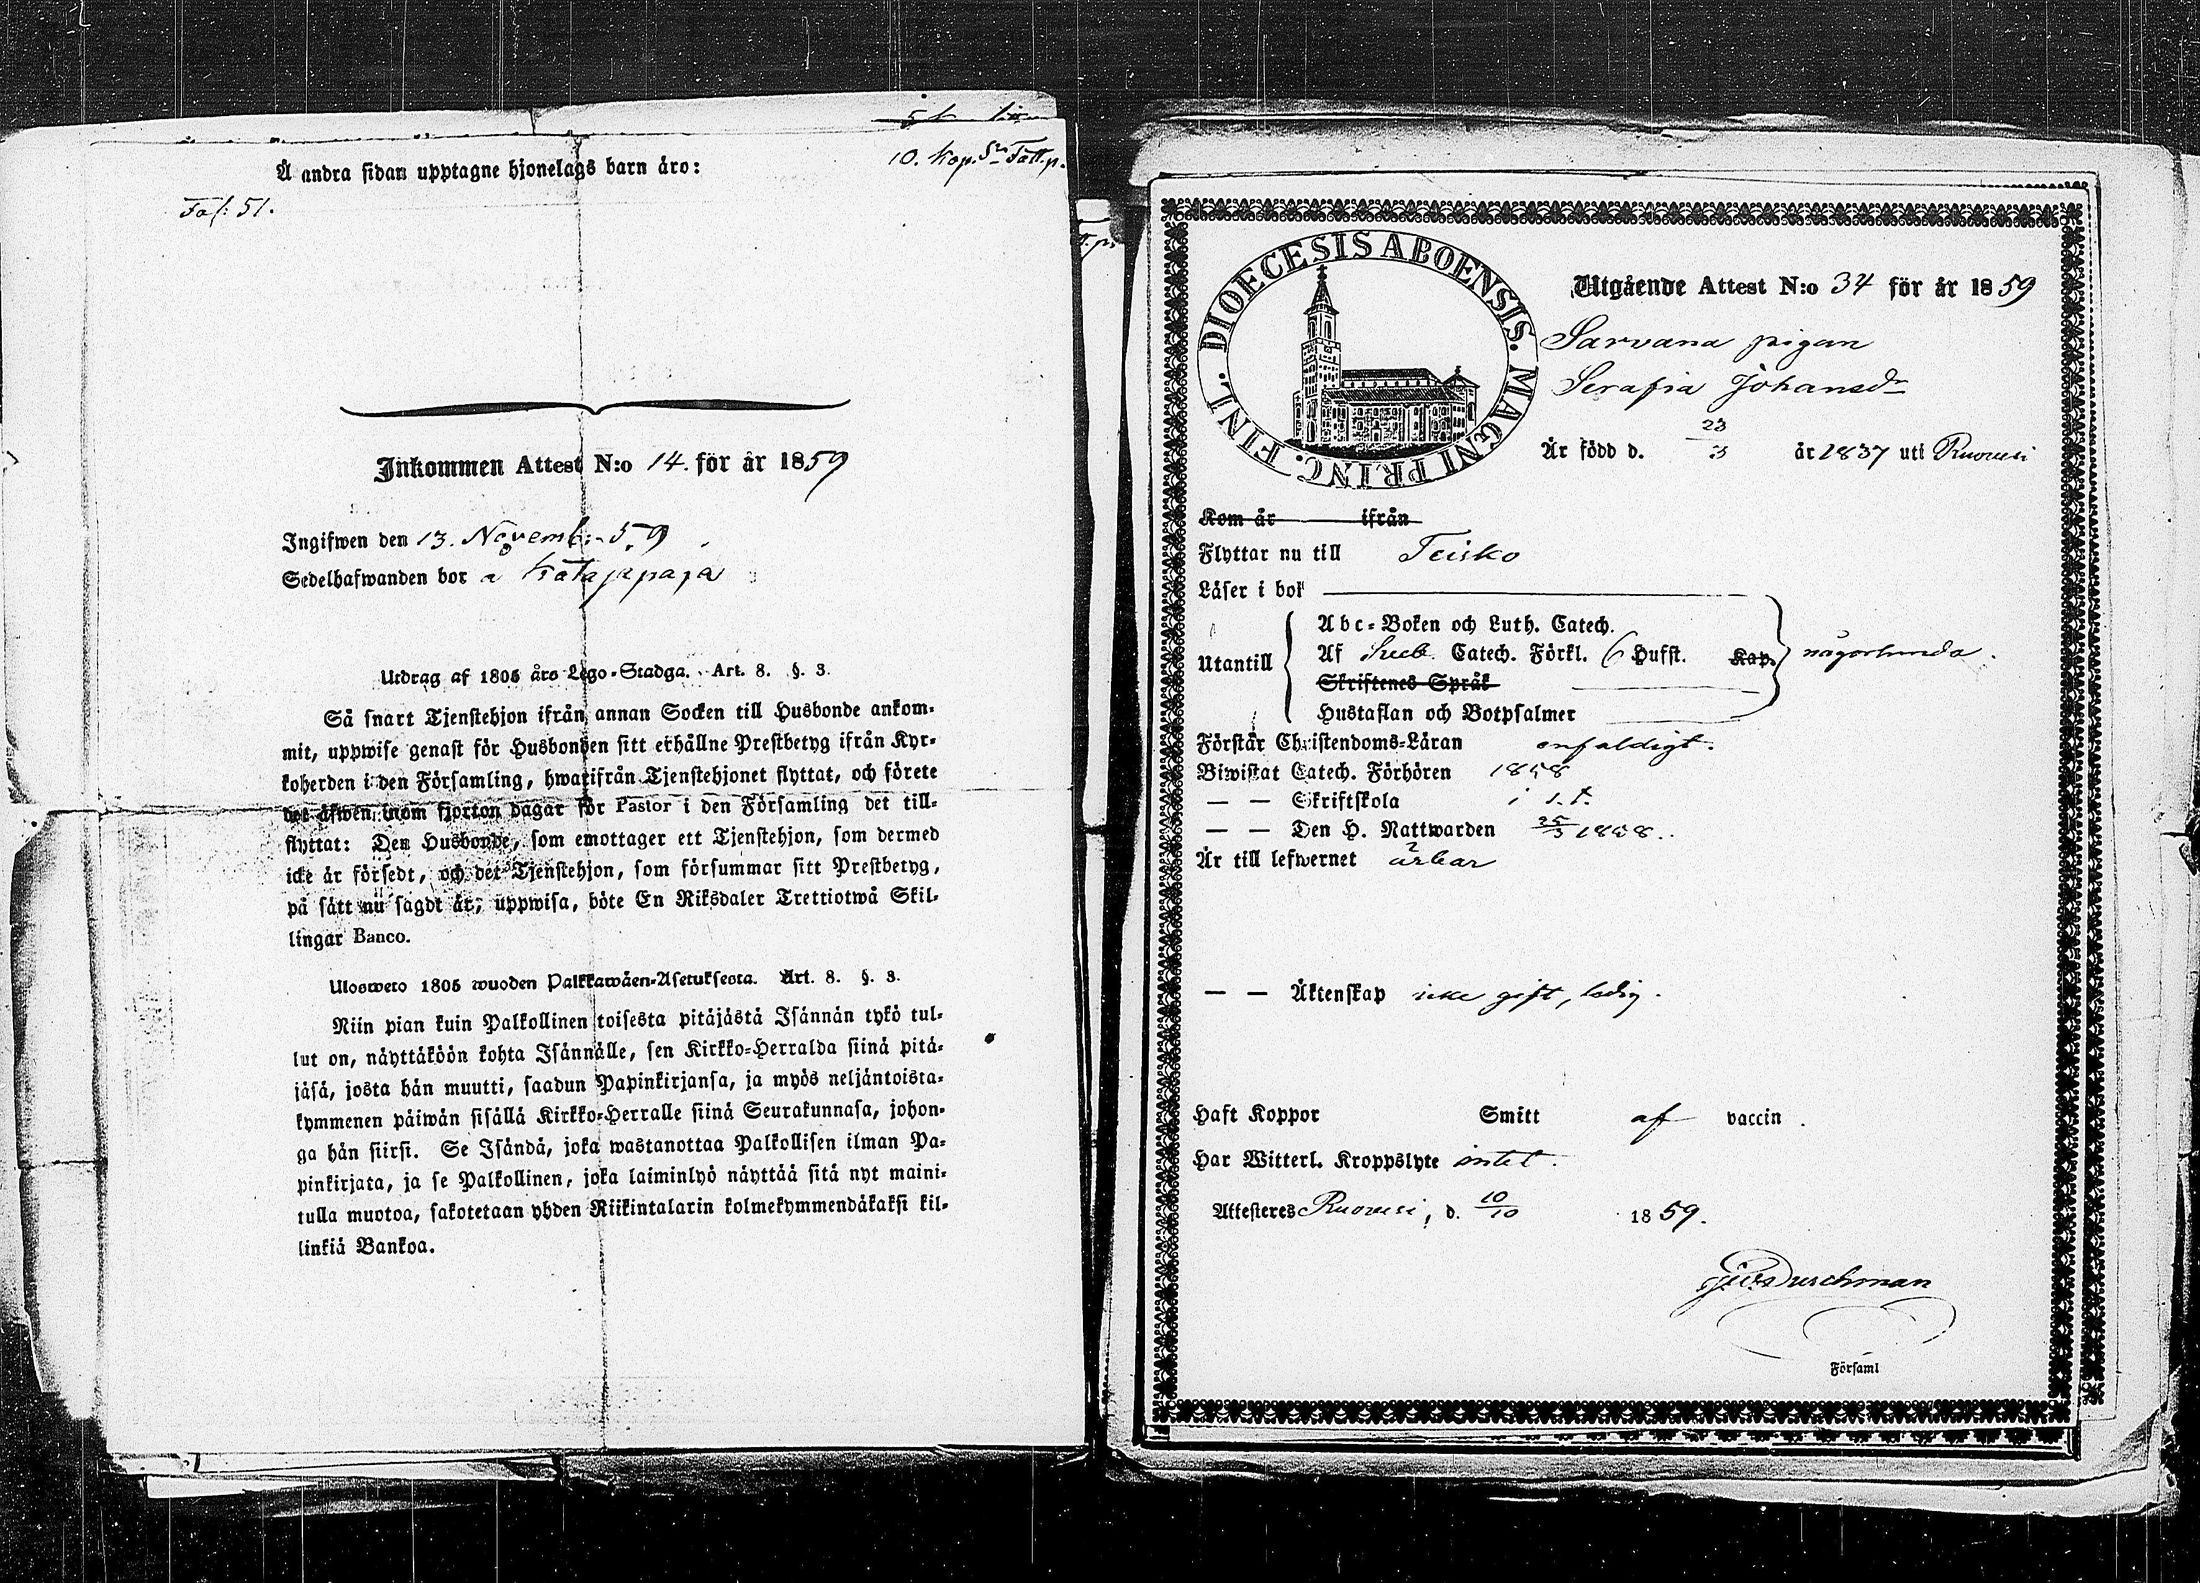 10. Kop. S:n Fatt.p.
Å andra sidan upptagne hjonelags barn äro:
Fol: 51.
Inkommen Attest N:o 14. för år 1859
Ingifwen den 13. Novemb: 59
Sedelhafwanden bor a Katajapaja
Utdrag af 1805 års Lego-Stadga. Art. 8. §. 3.
Så snart Tjenstehjon ifrån annan Socken till Husbonde ankom-
mit, uppwise genast för Husbonden sitt erhållne Prestbetyg ifrån Kyr-
koherden i den Församling, hwarifrån Tjenstehjonet flyttat, och förete
det äfwen inom fjorton dagar för Pastor i den Församling det till-
flyttat: Den Husbonde, som emottager ett Tjenstehjon, som dermed
icke är försedt, och det Tjenstehjon, som försummar sitt Prestbetyg,
på sätt nu sagdt är, uppwisa, böte En Riksdaler Trettiotwå Skil-
lingar Banco.
Ulosweto 1805 wuoden Palkkawäen-Asetuksesta. Art. 8. §. 3.
Niin pian kuin Palkollinen toisesta pitäjästä Isännän tykö tul-
lut on, näyttäköön kohta Isännälle, sen Kirkko-Herralda siinä pitä-
jäsä, josta hän muutti, saadun Papinkirjansa, ja myös neljäntoista-
kymmenen päiwän sisällä Kirkko-Herralle siinä Seurakunnasa, johon-
ga hän siirsi. Se Isändä, joka wastanottaa Palkollisen ilman Pa-
pinkirjata, ja se Palkollinen, joka laiminlyö näyttää sitä nyt maini-
tulla muotoa, sakotetaan yhden Riikintalarin kolmekymmendäkaksi kil-
linkiä Bankoa.
DIOECESIS ABOENSIS. MAGNI PRINC. FINL.
Utgående Attest N:o 34 för år 1859
Sarvana pigan
Serafia Johansdr
Är född d. 23/3 år 1837 uti Ruovesi
Kom år ifrån
Flyttar nu till Teisko
Läser i bok
Utantill
Abc-Boken och Luth. Catech.
Af Sveb. Catech. Förkl. 6 Hufst. Kap. någorlunda.
Skriftenes Språk
Hustaflan och Botpsalmer
Förstår Christendoms-Läran enfaldigt.
Biwistat Catech. Förhören 1858
— — Skriftskola i s. t.
— — Den H. Nattwarden 25/3 1858.
Är till lefwernet ärbar
— — Äktenskap icke gift, ledig.
Haft Koppor Smitt af vaccin.
Har Witterl. Kroppslyte intet.
Attesteres Ruovesi, d. 10/10 1859.
Durchman
Församl